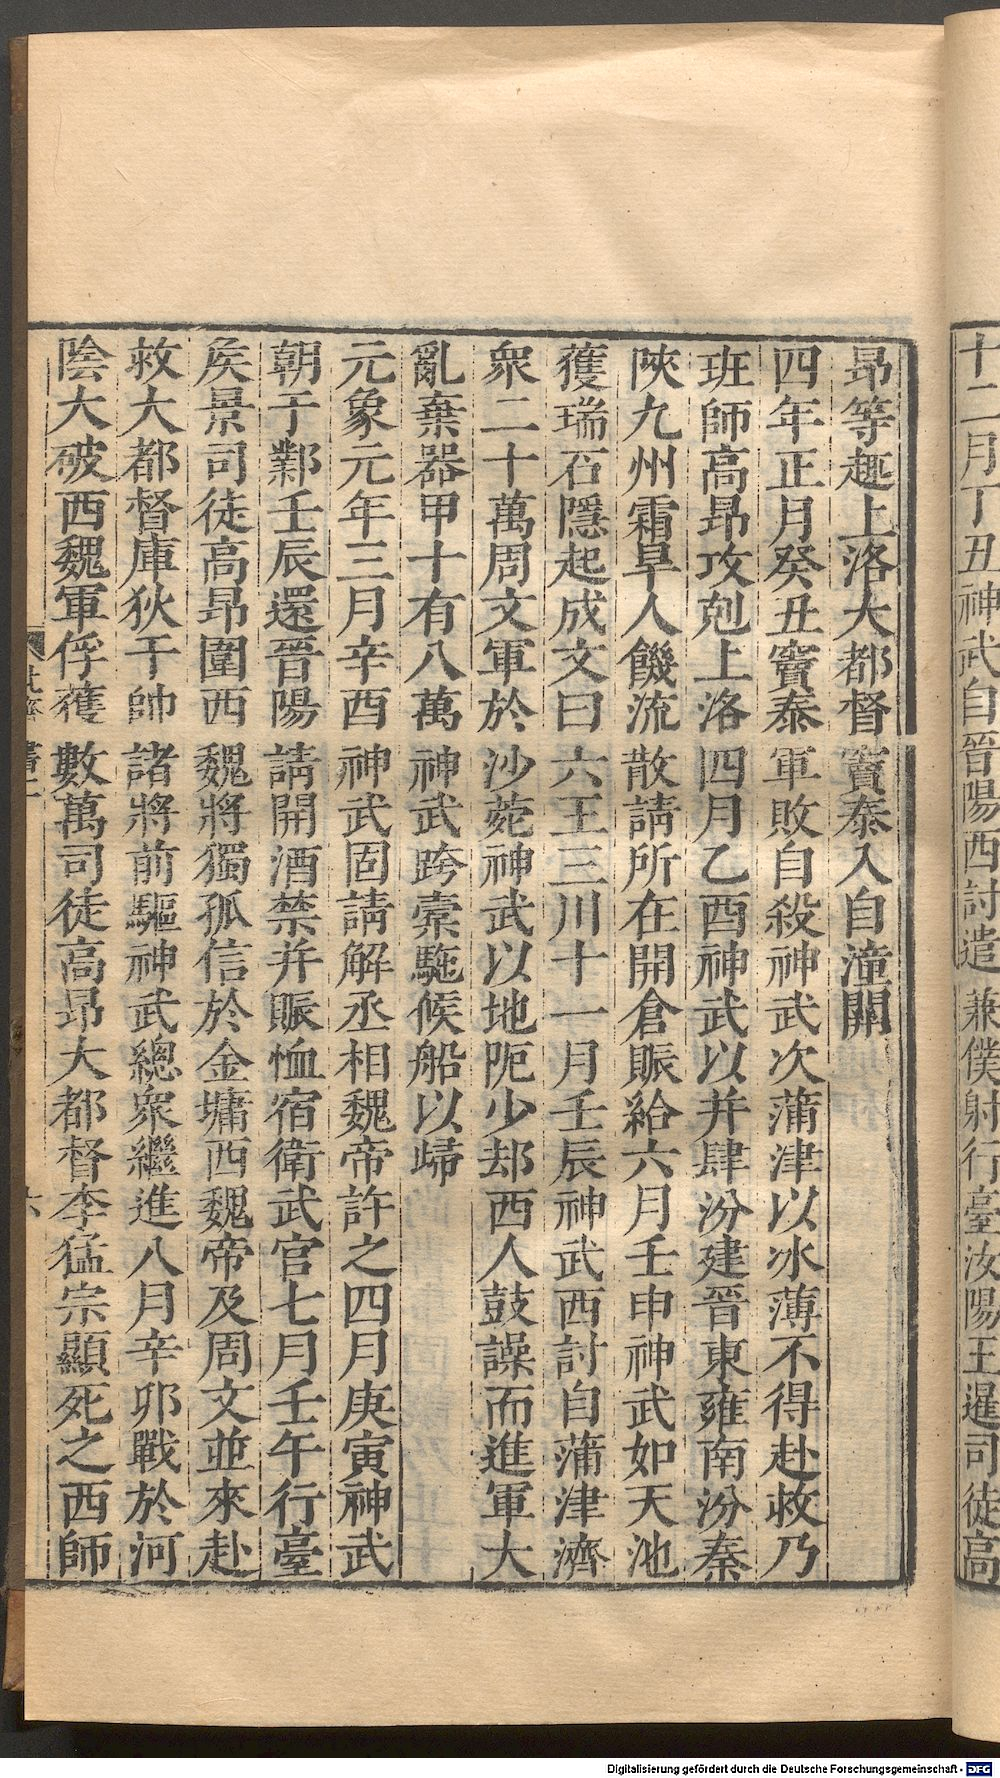 十二月丁丑神武自晉陽西討遣兼僕射行臺汝陽王暹司徒高
昂等趣上洛大都督竇泰入自潼關
四年正月癸丑竇泰軍敗自殺神武次蒲津以冰薄不得赴救乃
班師高昂攻剋上洛四月乙酉神武以并肆汾建晉東雍南汾秦
陝九州霜旱人饑流散請所在開倉賑給六月壬申神武如天池
獲瑞石隱起成文曰六王三川十一月壬辰神武西討自蒲津濟
衆二十萬周文軍於沙苑神武以地阨少却西人鼓譟而進軍大
亂棄器甲十有八萬神武跨橐駞候船以歸
元象元年三月辛酉神武固請解丞相魏帝許之四月庚寅神武
朝于鄴壬辰還晉陽請開酒禁并賑恤宿衛武官七月壬午行臺
矦景司徒高昂圍西魏將獨孤信於金墉西魏帝及周文並來赴
救大都督庫狄干帥諸將前驅神武總衆繼進八月辛卯戰於河
陰大破西魏軍俘獲數萬司徒高昂大都督李猛宗顯死之西師
Digitalisierung gefördert durch die Deutsche Forschungsgemeinschaft - DFG